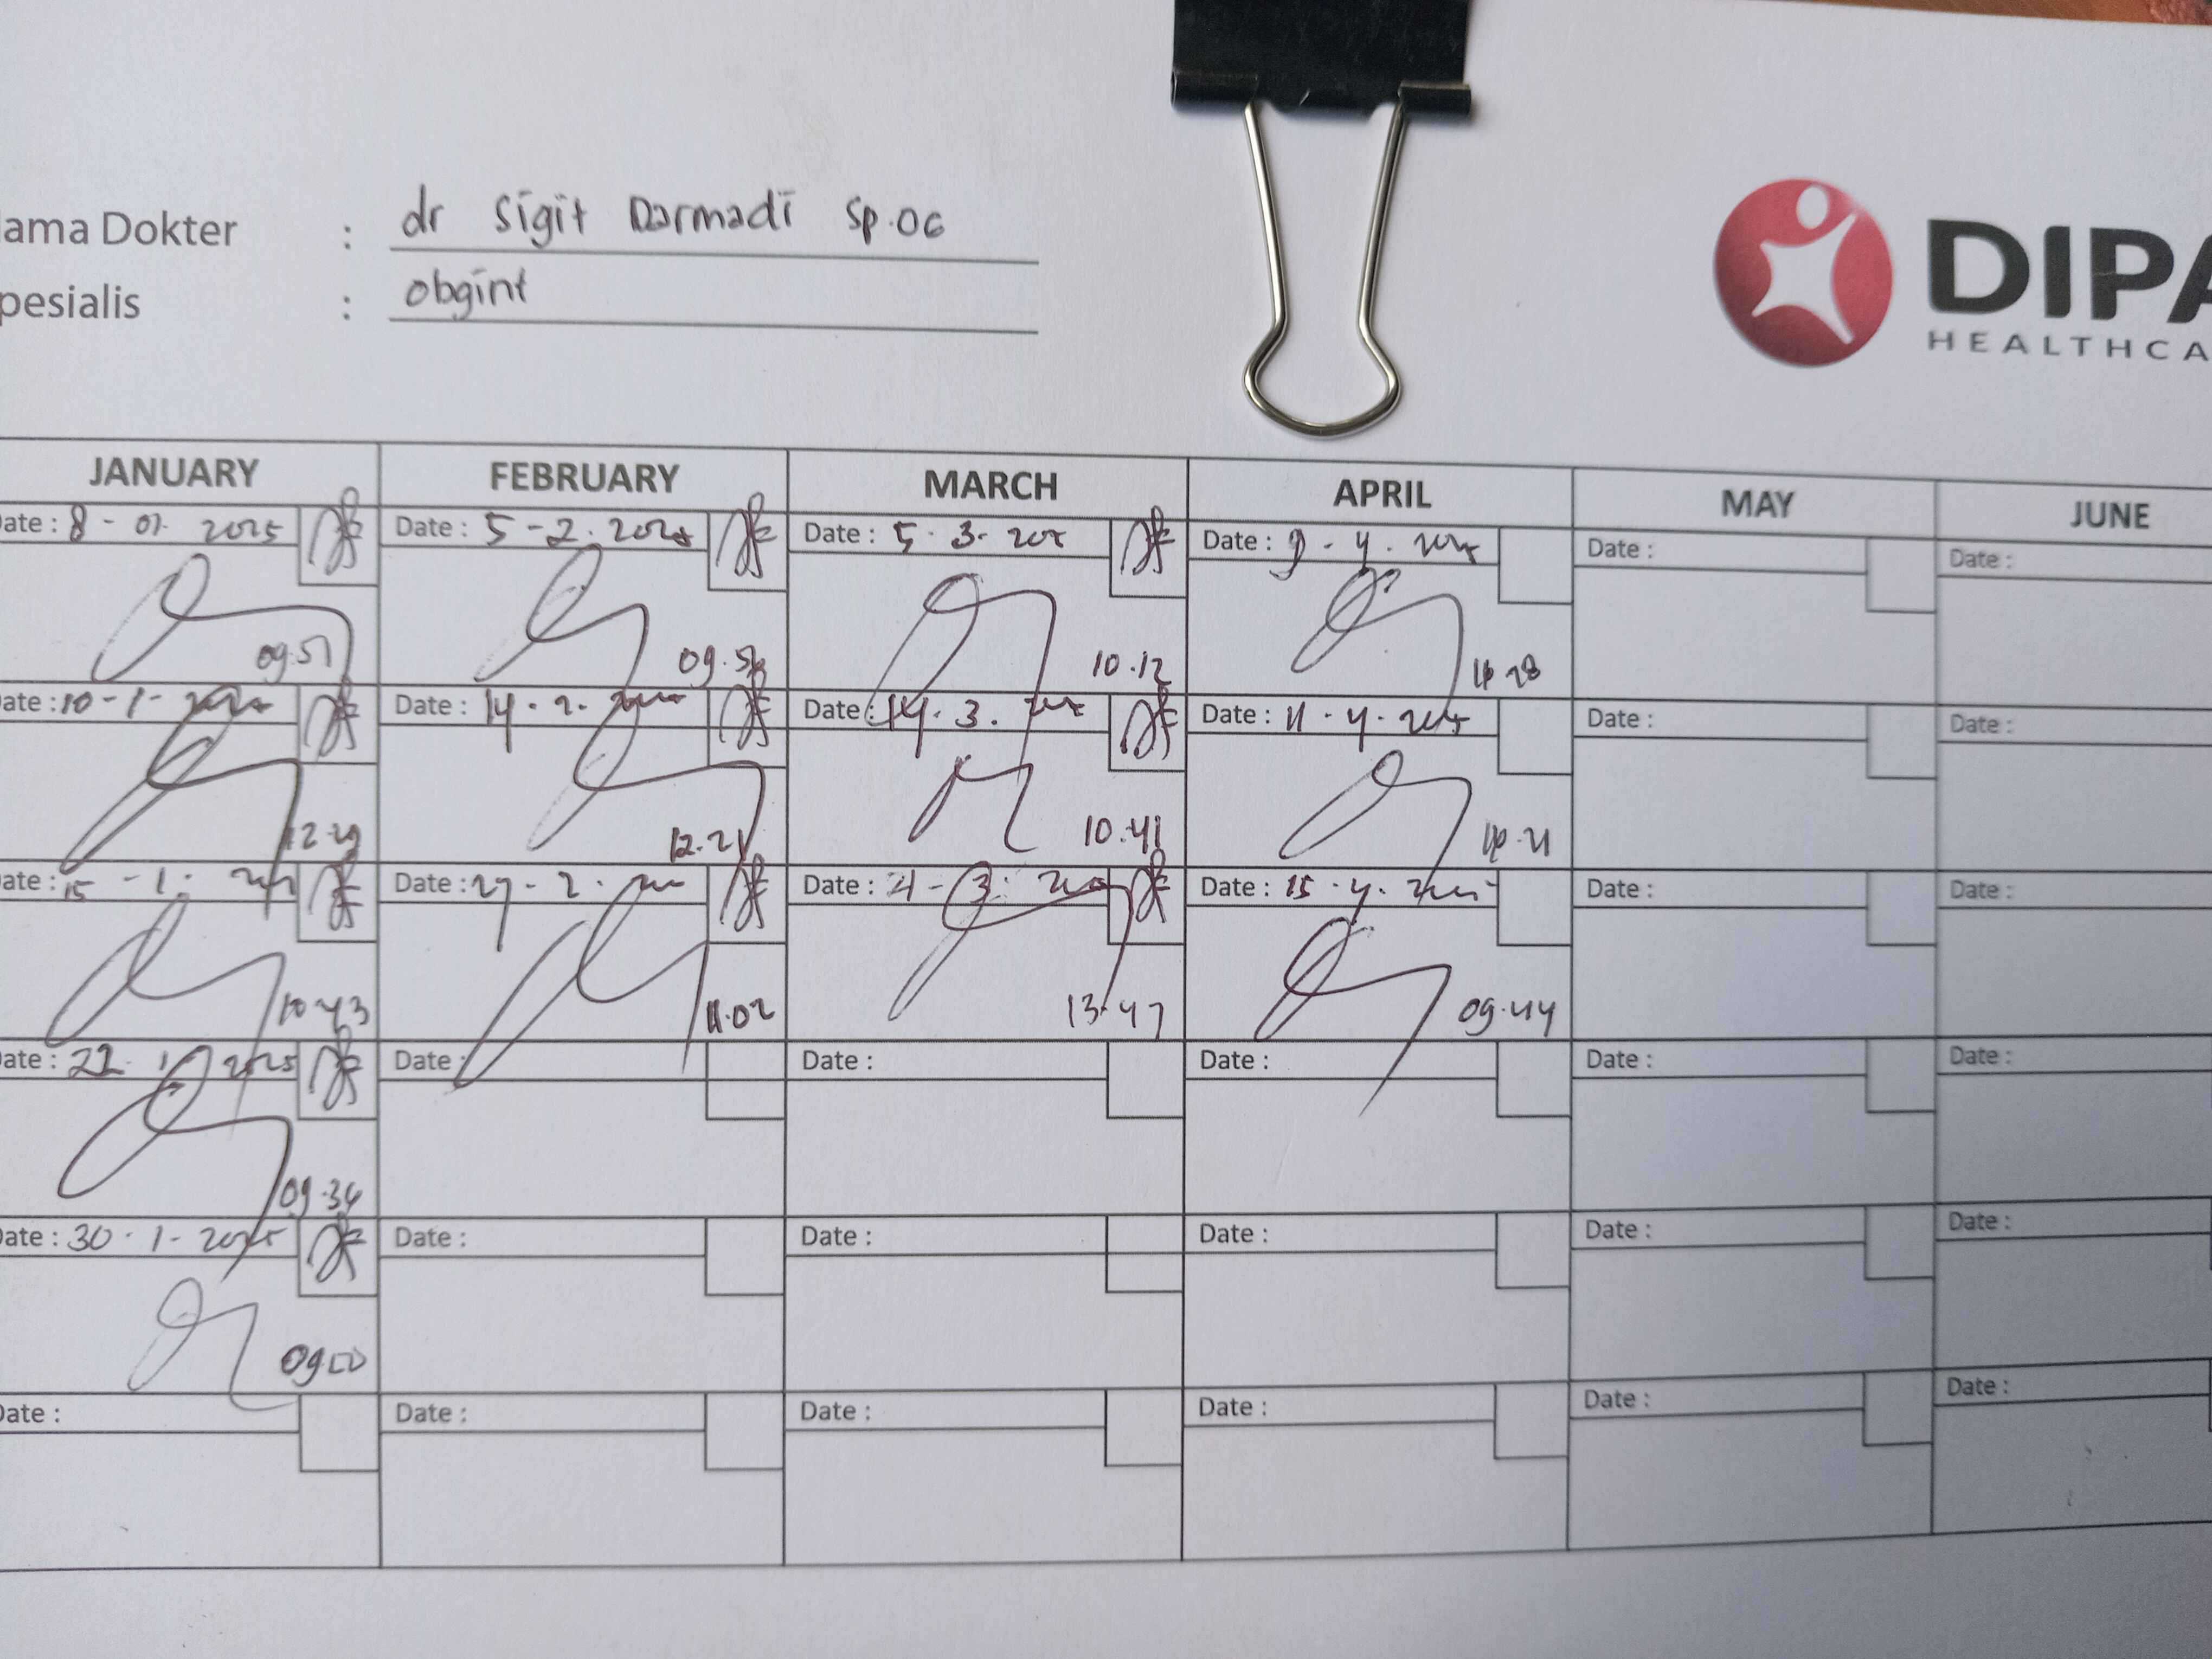 ama Dokter : dr Sigit Darmadi Sp.OG
pesialis : obgint
DIPA
HEALTHCA
JANUARY FEBRUARY MARCH APRIL MAY JUNE
ate : 8 - 01- 2025 Date : 5 - 2 . 2025 Date : 5 . 3 - 202 Date : 9 - 4 . 2025 Date : Date :
09.51 09.58 10.12
ate : 10 - 1 - Date : 14 . 2 . Date : 14 . 3 . Date : 11 - 4 . 2025 Date : Date :
12.29 12.21 10.41
ate : 15 - 1 . Date : 27 - 2 . Date : 21 - 3 . Date : 15 . 4 . Date : Date :
10.43 11.02 13.47 09.44
ate : 22 . 1 2025 Date : Date : Date : Date : Date :
09.34
ate : 30 . 1 - 2025 Date : Date : Date : Date : Date :
09.50
ate : Date : Date : Date : Date : Date :